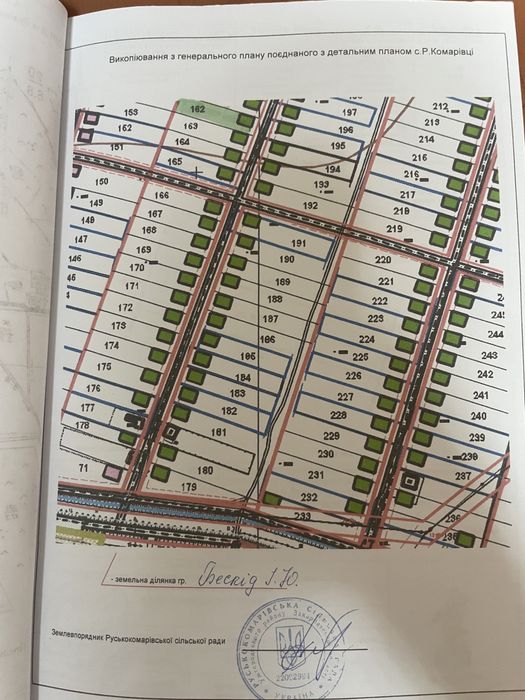 Викопіювання з генерального плану поєднаного з детальним планом с.Р.Комарівці
162 197 212
153 163 196 213
152 164 195 214
151 165 194 215
150 166 193 216
149 167 192 217
148 168 191 218
147 169 190 219
146 170 189 220
171 188 221
172 187 222
173 186 223
174 185 224 244
175 184 225 243
176 183 226 242
177 182 227 241
178 181 228 240
71 180 229 239
179 230 238
231 237
232 236
233 235
- земельна ділянка гр. Бескід І.Ю.
Землевпорядник Руськокомарівської сільської ради
РУСЬКОКОМАРІВСЬКА
УКРАЇНА